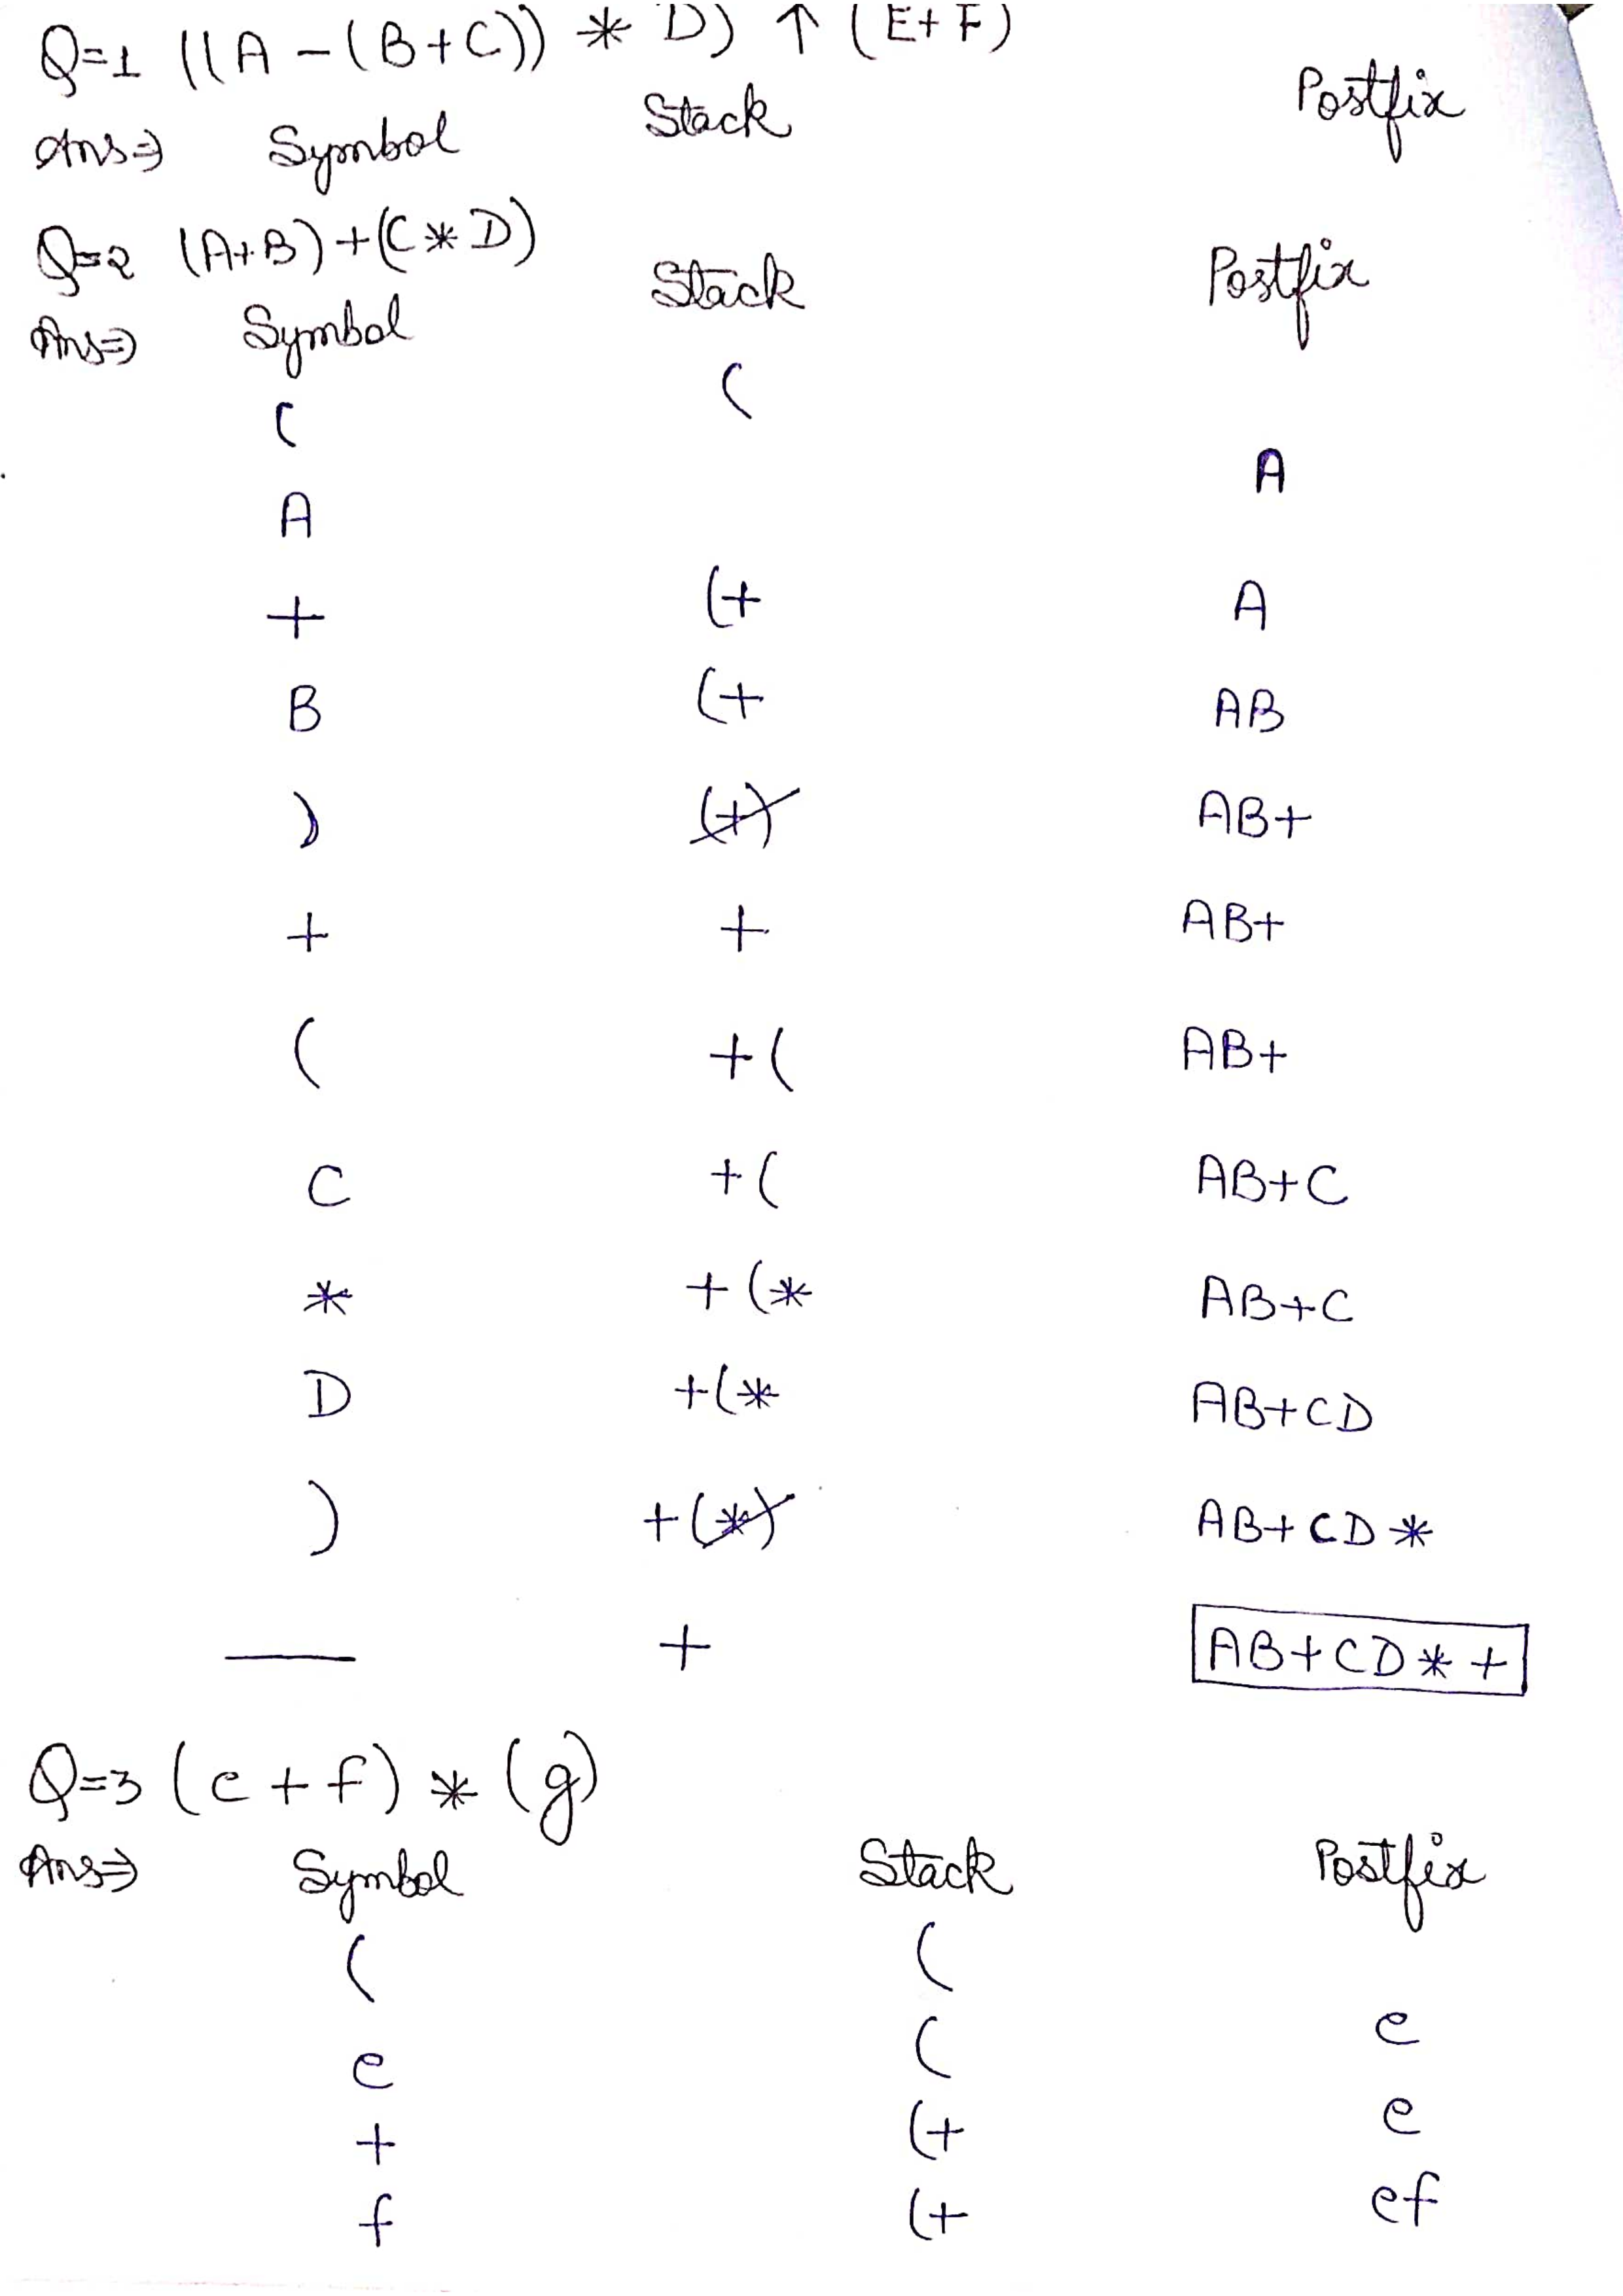 Q=1 ((A - (B+C)) * D) ↑ (E+F)
Ans⇒ Symbol Stack Postfix
Q=2 (A+B)+(C*D)
Ans⇒ Symbol Stack Postfix
( (
A A
+ (+ A
B (+ AB
) (+) AB+
+ + AB+
( +( AB+
C +( AB+C
* +(* AB+C
D +(* AB+CD
) +(*) AB+CD*
— + AB+CD*+
Q=3 (e+f) * (g)
Ans⇒ Symbol Stack Postfix
( (
e ( e
+ (+ e
f (+ ef